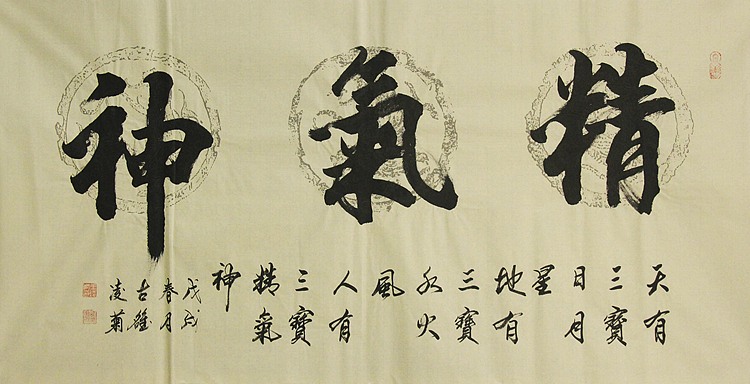 精氣神
天有
三寶
日月
星
地有
三寶
水火
風
人有
三寶
精氣
神
戊戌
春月
古雒
凌菊